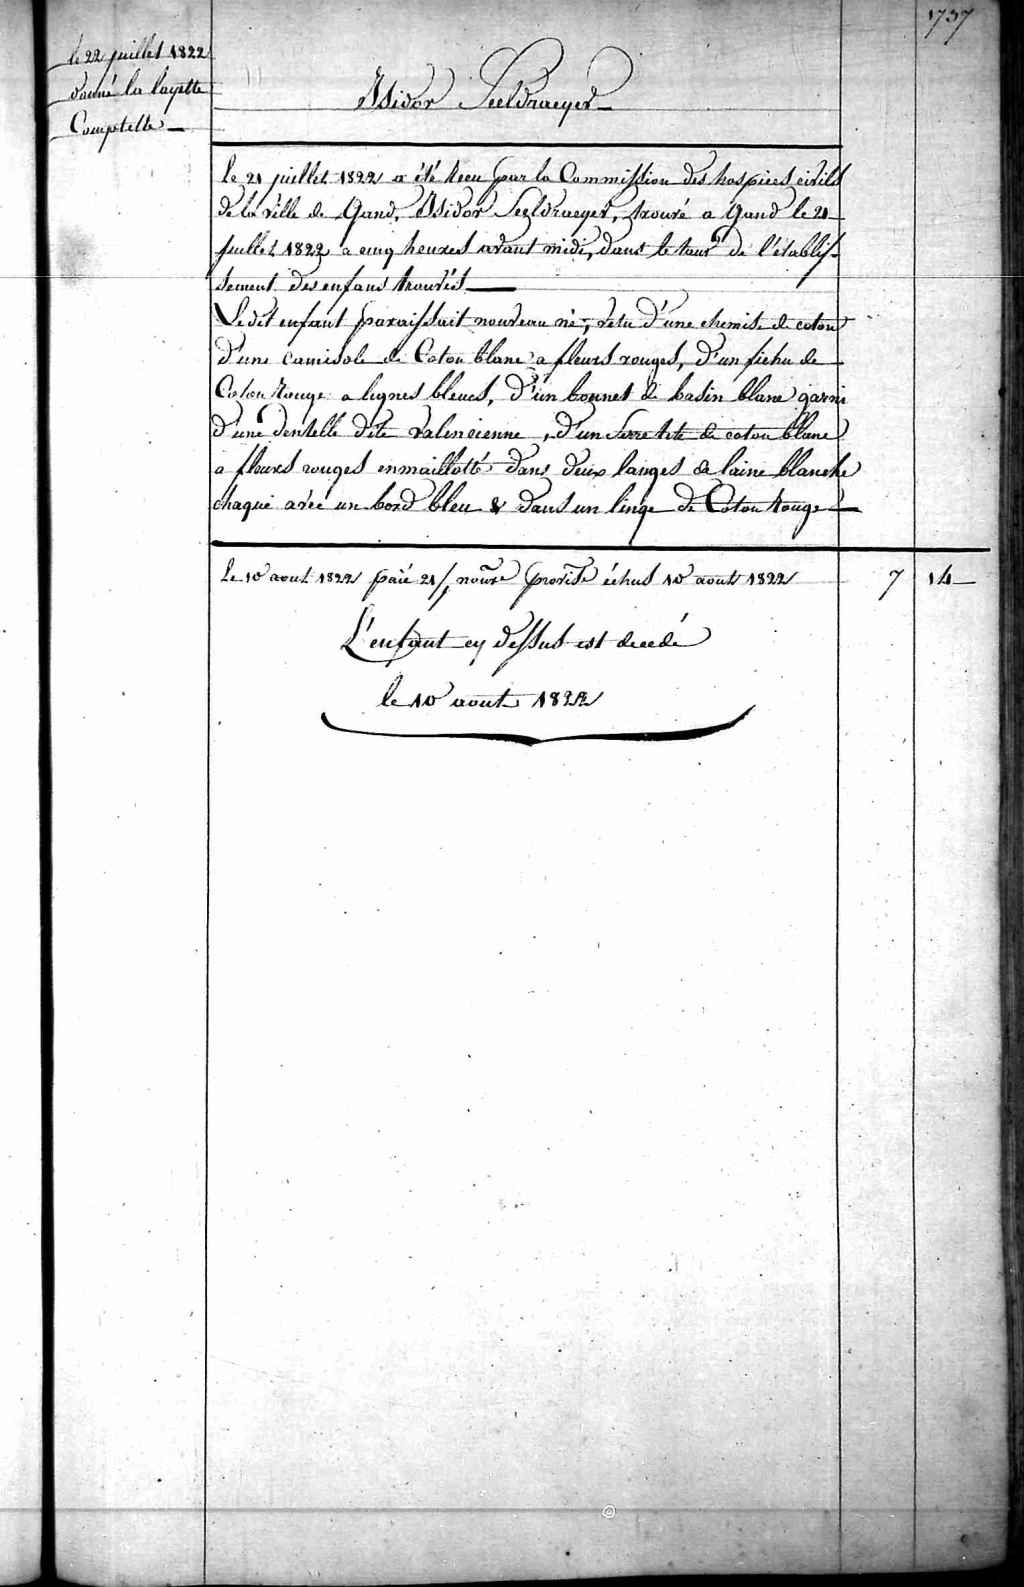 1737
le 22 juillet 1822
donné la layette
Complette —
Isidor Seeldraeyer —
Le 21 juillet 1822 a été Recu par la Commission des hospices civils
de la ville de Gand, Isidor Seeldraeyer, trouvé a Gand le 21
juillet 1822 a cinq heures avant midi, dans le tour de l'établis-
sement des enfans trouvés —
Ledit enfant paraissait nouveau né, vetu d'une chemise de coton
d'une camisole de Coton blanc a fleurs rouges, d'un fichu de
Coton Rouge a lignes bleues, d'un bonnet de basin blanc garni
d'une dentelle dite valencienne, d'un Serre tete de coton blanc
a fleurs rouges enmaillotté dans deux langes de laine blanche
chaque avec un bord bleu & dans un linge de Coton Rouge —
Le 10 aout 1822 paié 21/j nourre provisre échus 10 aout 1822 7 14 —
L'enfant cy dessus est decedé
le 10 aout 1822